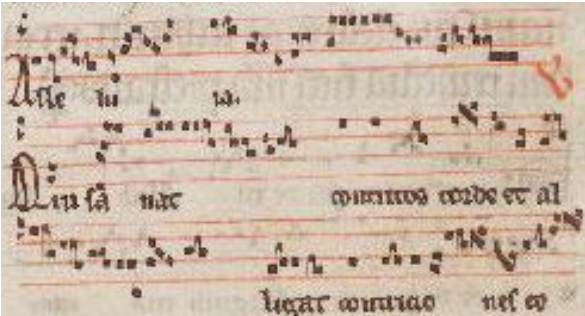 Alle lu ia. ℣
Qui sā nat contritos corde et al
ligat contricio nes eo